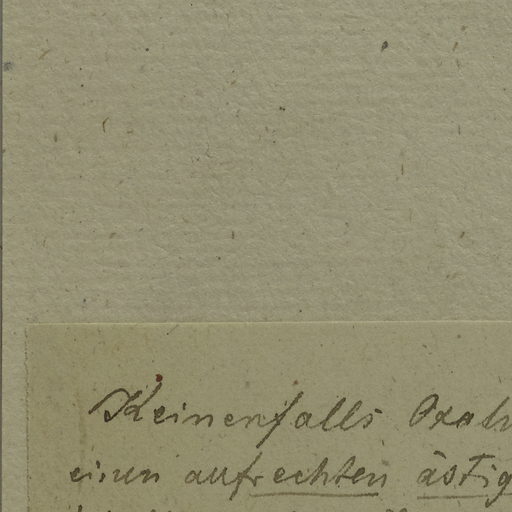 Keinenfalls
einen aufrechten ästig